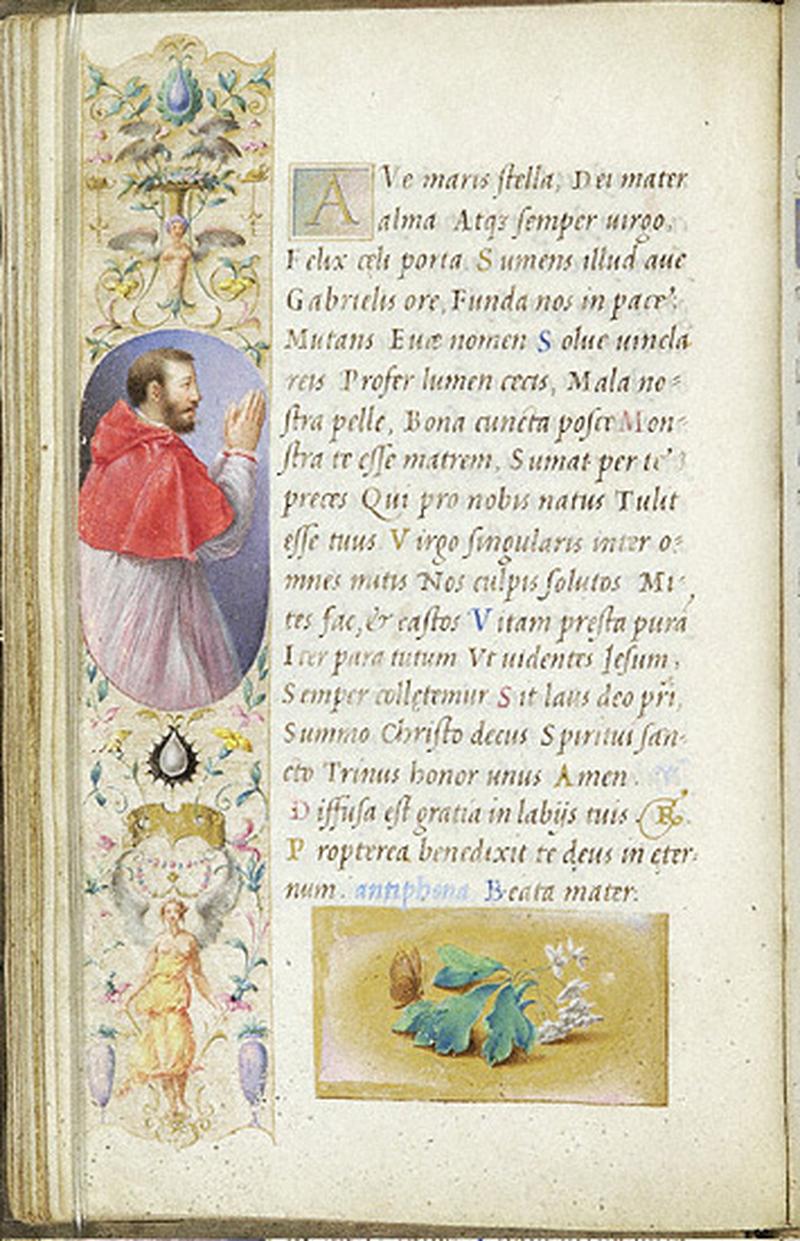 AVe maris ſtella, Dei mater
alma Atqꝫ ſemper uirgo,
Felix cęli porta Sumens illud aue
Gabrielis ore, Funda nos in pace:
Mutans Euæ nomen Solue uincla
reis Profer lumen cęcis, Mala no-
ſtra pelle, Bona cuncta poſce Mon-
ſtra te eſſe matrem, Sumat per te
preces Qui pro nobis natus Tulit
eſſe tuus Virgo ſingularis inter o-
mnes mitis Nos culpis ſolutos Mi-
tes fac, & caſtos Vitam preſta purã
Iter para tutum Vt uidentes Ieſum,
Semper collętemur Sit laus deo pr̃i,
Summo Chriſto decus Spiritui ſan-
cto Trinus honor unus Amen.
Diffuſa eſt gratia in labijs tuis. R.
Propterea benedixit te deus in ęter-
num. antiphona Beata mater.